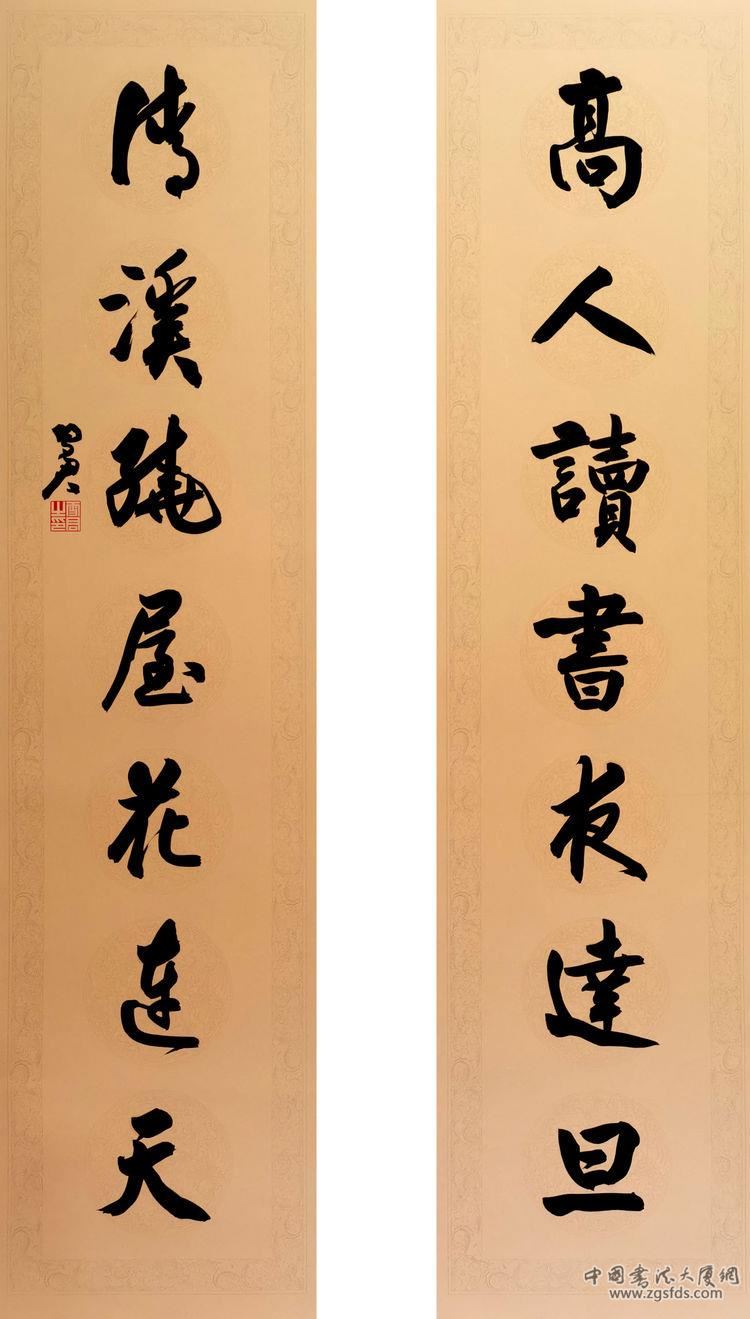 高人讀書夜達旦
清溪繞屋花連天
中國書法大廈網
www.zgsfds.com